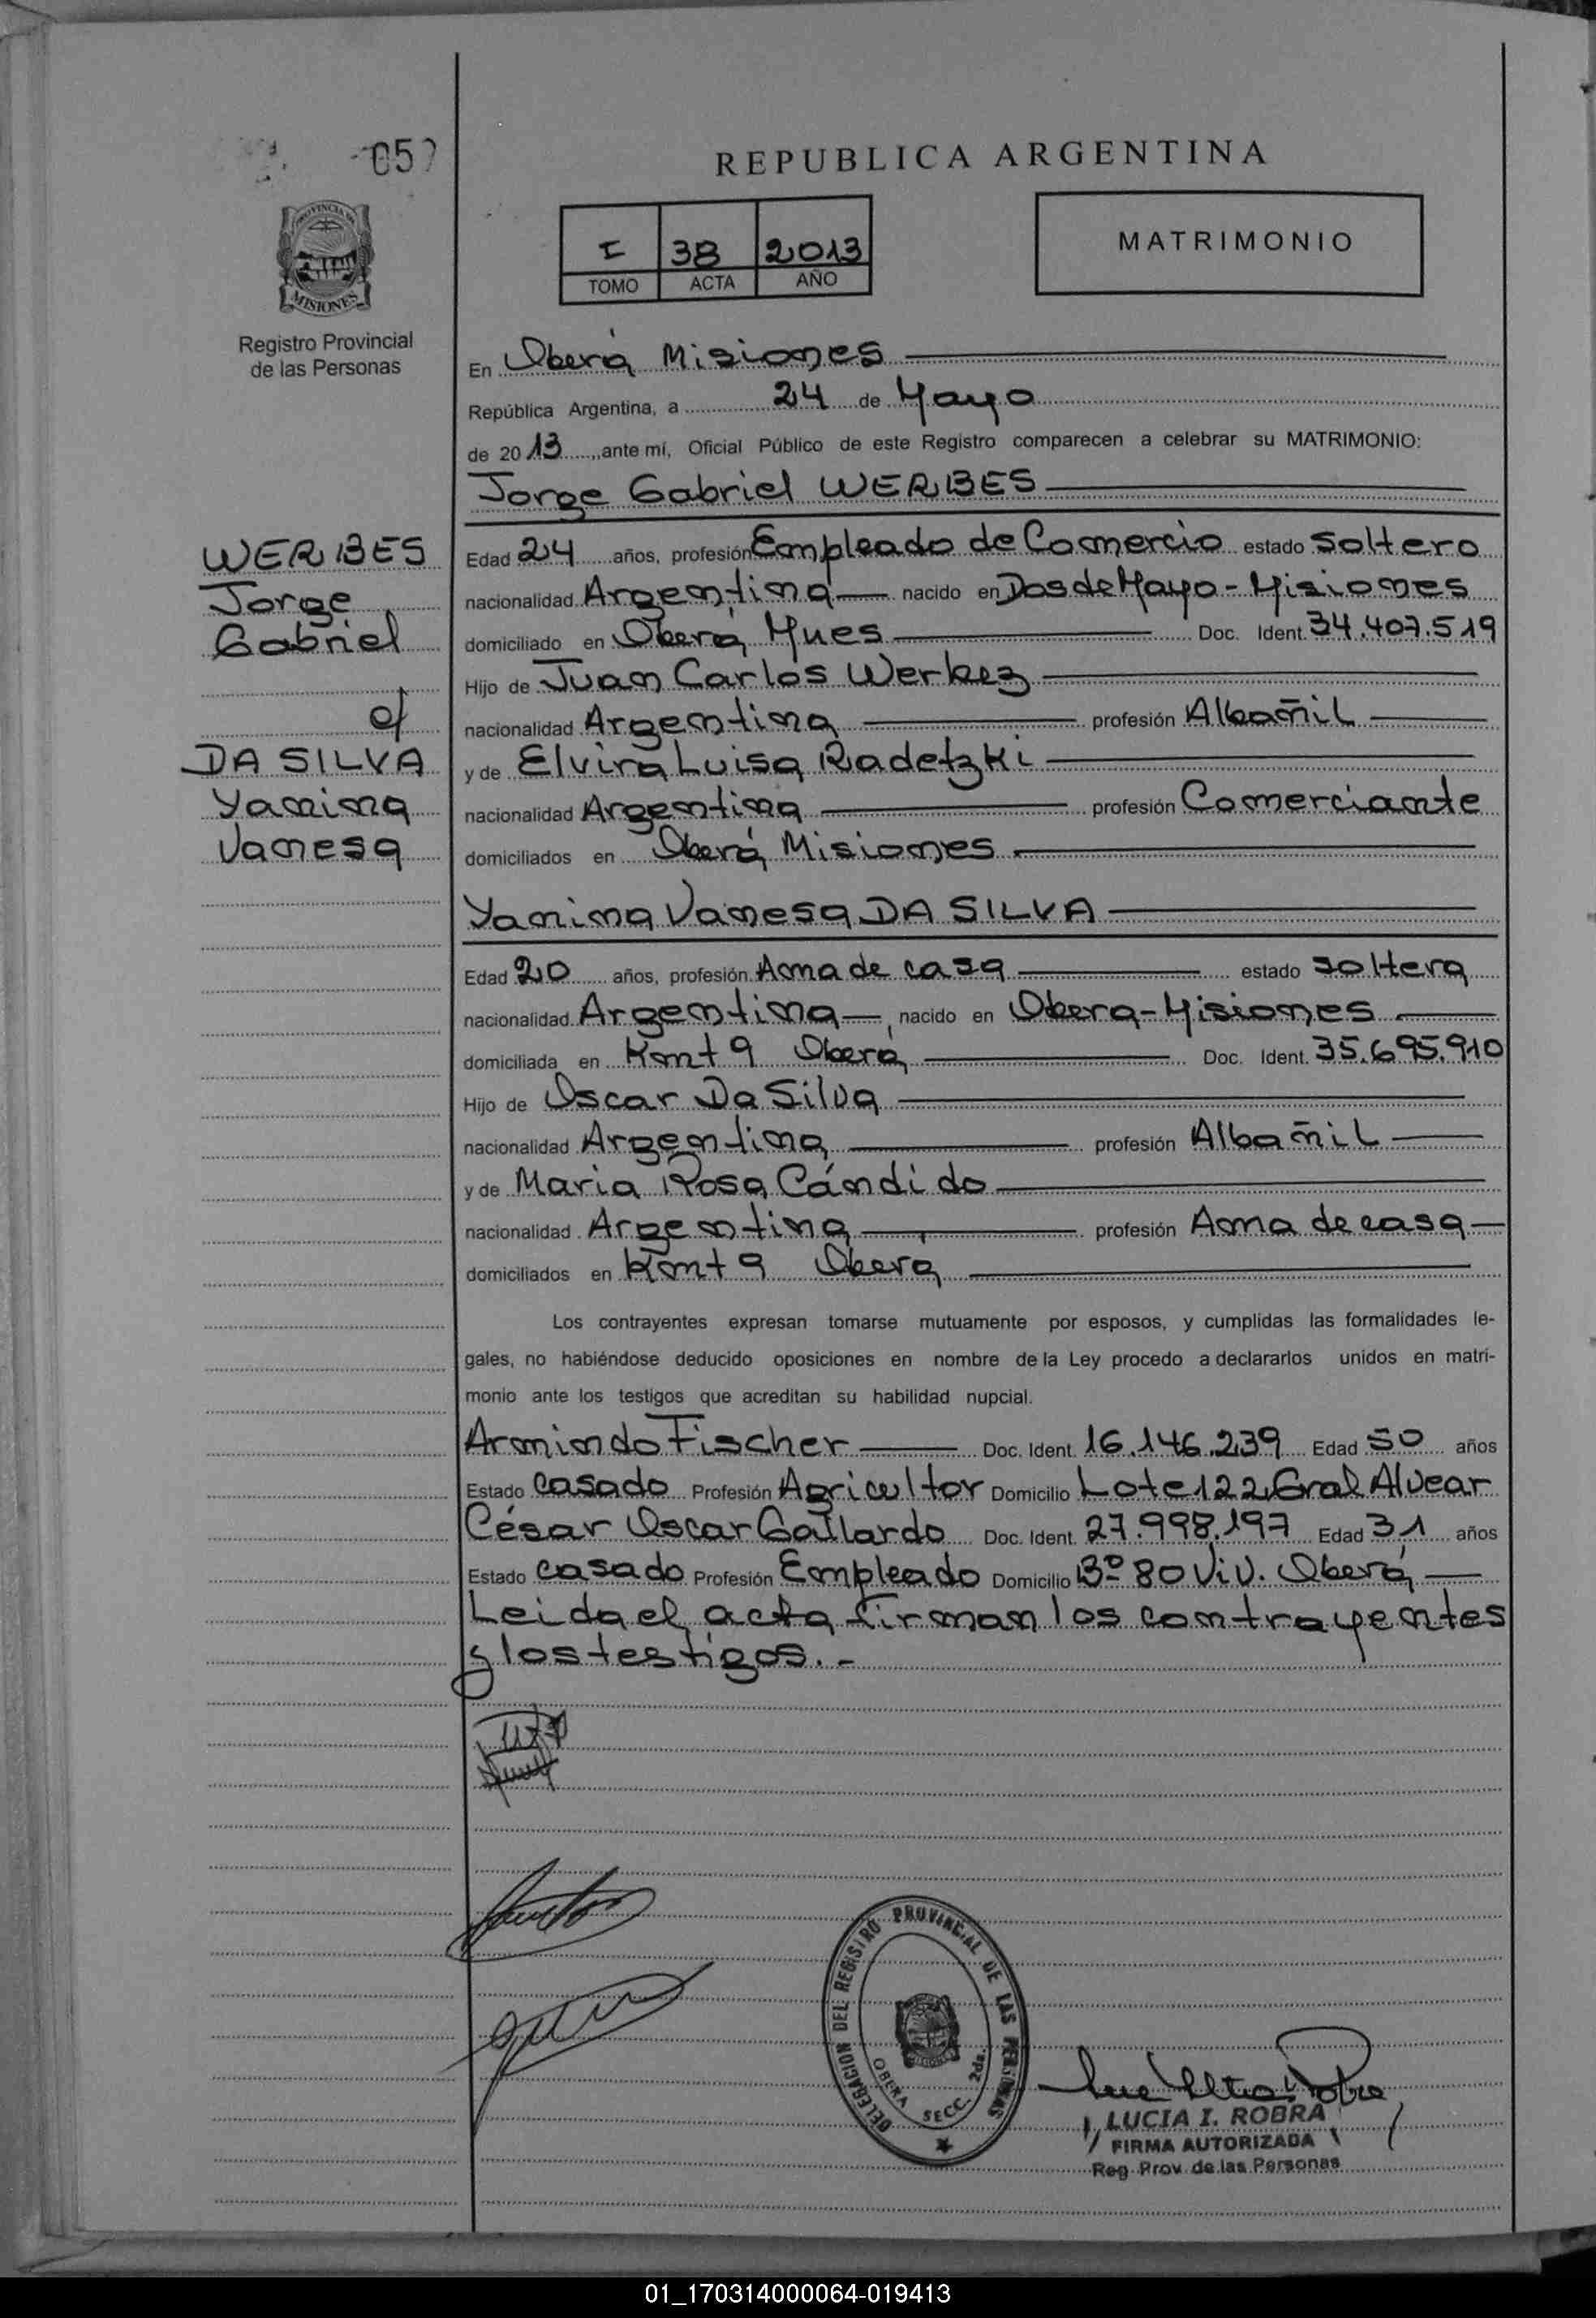 REPUBLICA ARGENTINA
PROVINCIA DE
MISIONES
Registro Provincial
de las Personas
I 38 2013
TOMO ACTA AÑO
MATRIMONIO
En Oberá Misiones
República Argentina, a 24 de Mayo
de 2013, ante mí, Oficial Público de este Registro comparecen a celebrar su MATRIMONIO:
Jorge Gabriel WERBES
WERBES
Jorge
Gabriel
c/
DA SILVA
Yanina
Vanesa
Edad 24 años, profesión Empleado de Comercio estado soltero
nacionalidad Argentina nacido en Dos de Mayo - Misiones
domiciliado en Oberá Mnes Doc. Ident. 34.407.519
Hijo de Juan Carlos Werbez
nacionalidad Argentina profesión Albañil
y de Elvira Luisa Radetzki
nacionalidad Argentina profesión Comerciante
domiciliados en Oberá Misiones
Yanina Vanesa DA SILVA
Edad 20 años, profesión Ama de casa estado soltera
nacionalidad Argentina nacido en Obera - Misiones
domiciliada en Kmt 9 Oberá Doc. Ident. 35.695.910
Hijo de Oscar Da Silva
nacionalidad Argentina profesión Albañil
y de Maria Rosa Cándido
nacionalidad Argentina profesión Ama de casa
domiciliados en Kmt 9 Oberá
Los contrayentes expresan tomarse mutuamente por esposos, y cumplidas las formalidades le-
gales, no habiéndose deducido oposiciones en nombre de la Ley procedo a declararlos unidos en matri-
monio ante los testigos que acreditan su habilidad nupcial.
Armindo Fischer Doc. Ident. 16.146.239 Edad 50 años
Estado casado Profesión Agricultor Domicilio Lote 122 Gral Alvear
César Oscar Gallardo Doc. Ident. 27.998.197 Edad 31 años
Estado casado Profesión Empleado Domicilio Bº 80 Viv. Oberá
Leida el acta firman los contrayentes
y los testigos.-
DELEGACION DEL REGISTRO PROVINCIAL DE LAS PERSONAS
OBERA SECC. 2da.
LUCIA I. ROBRA
FIRMA AUTORIZADA
Reg. Prov. de las Personas
01_170314000064-019413